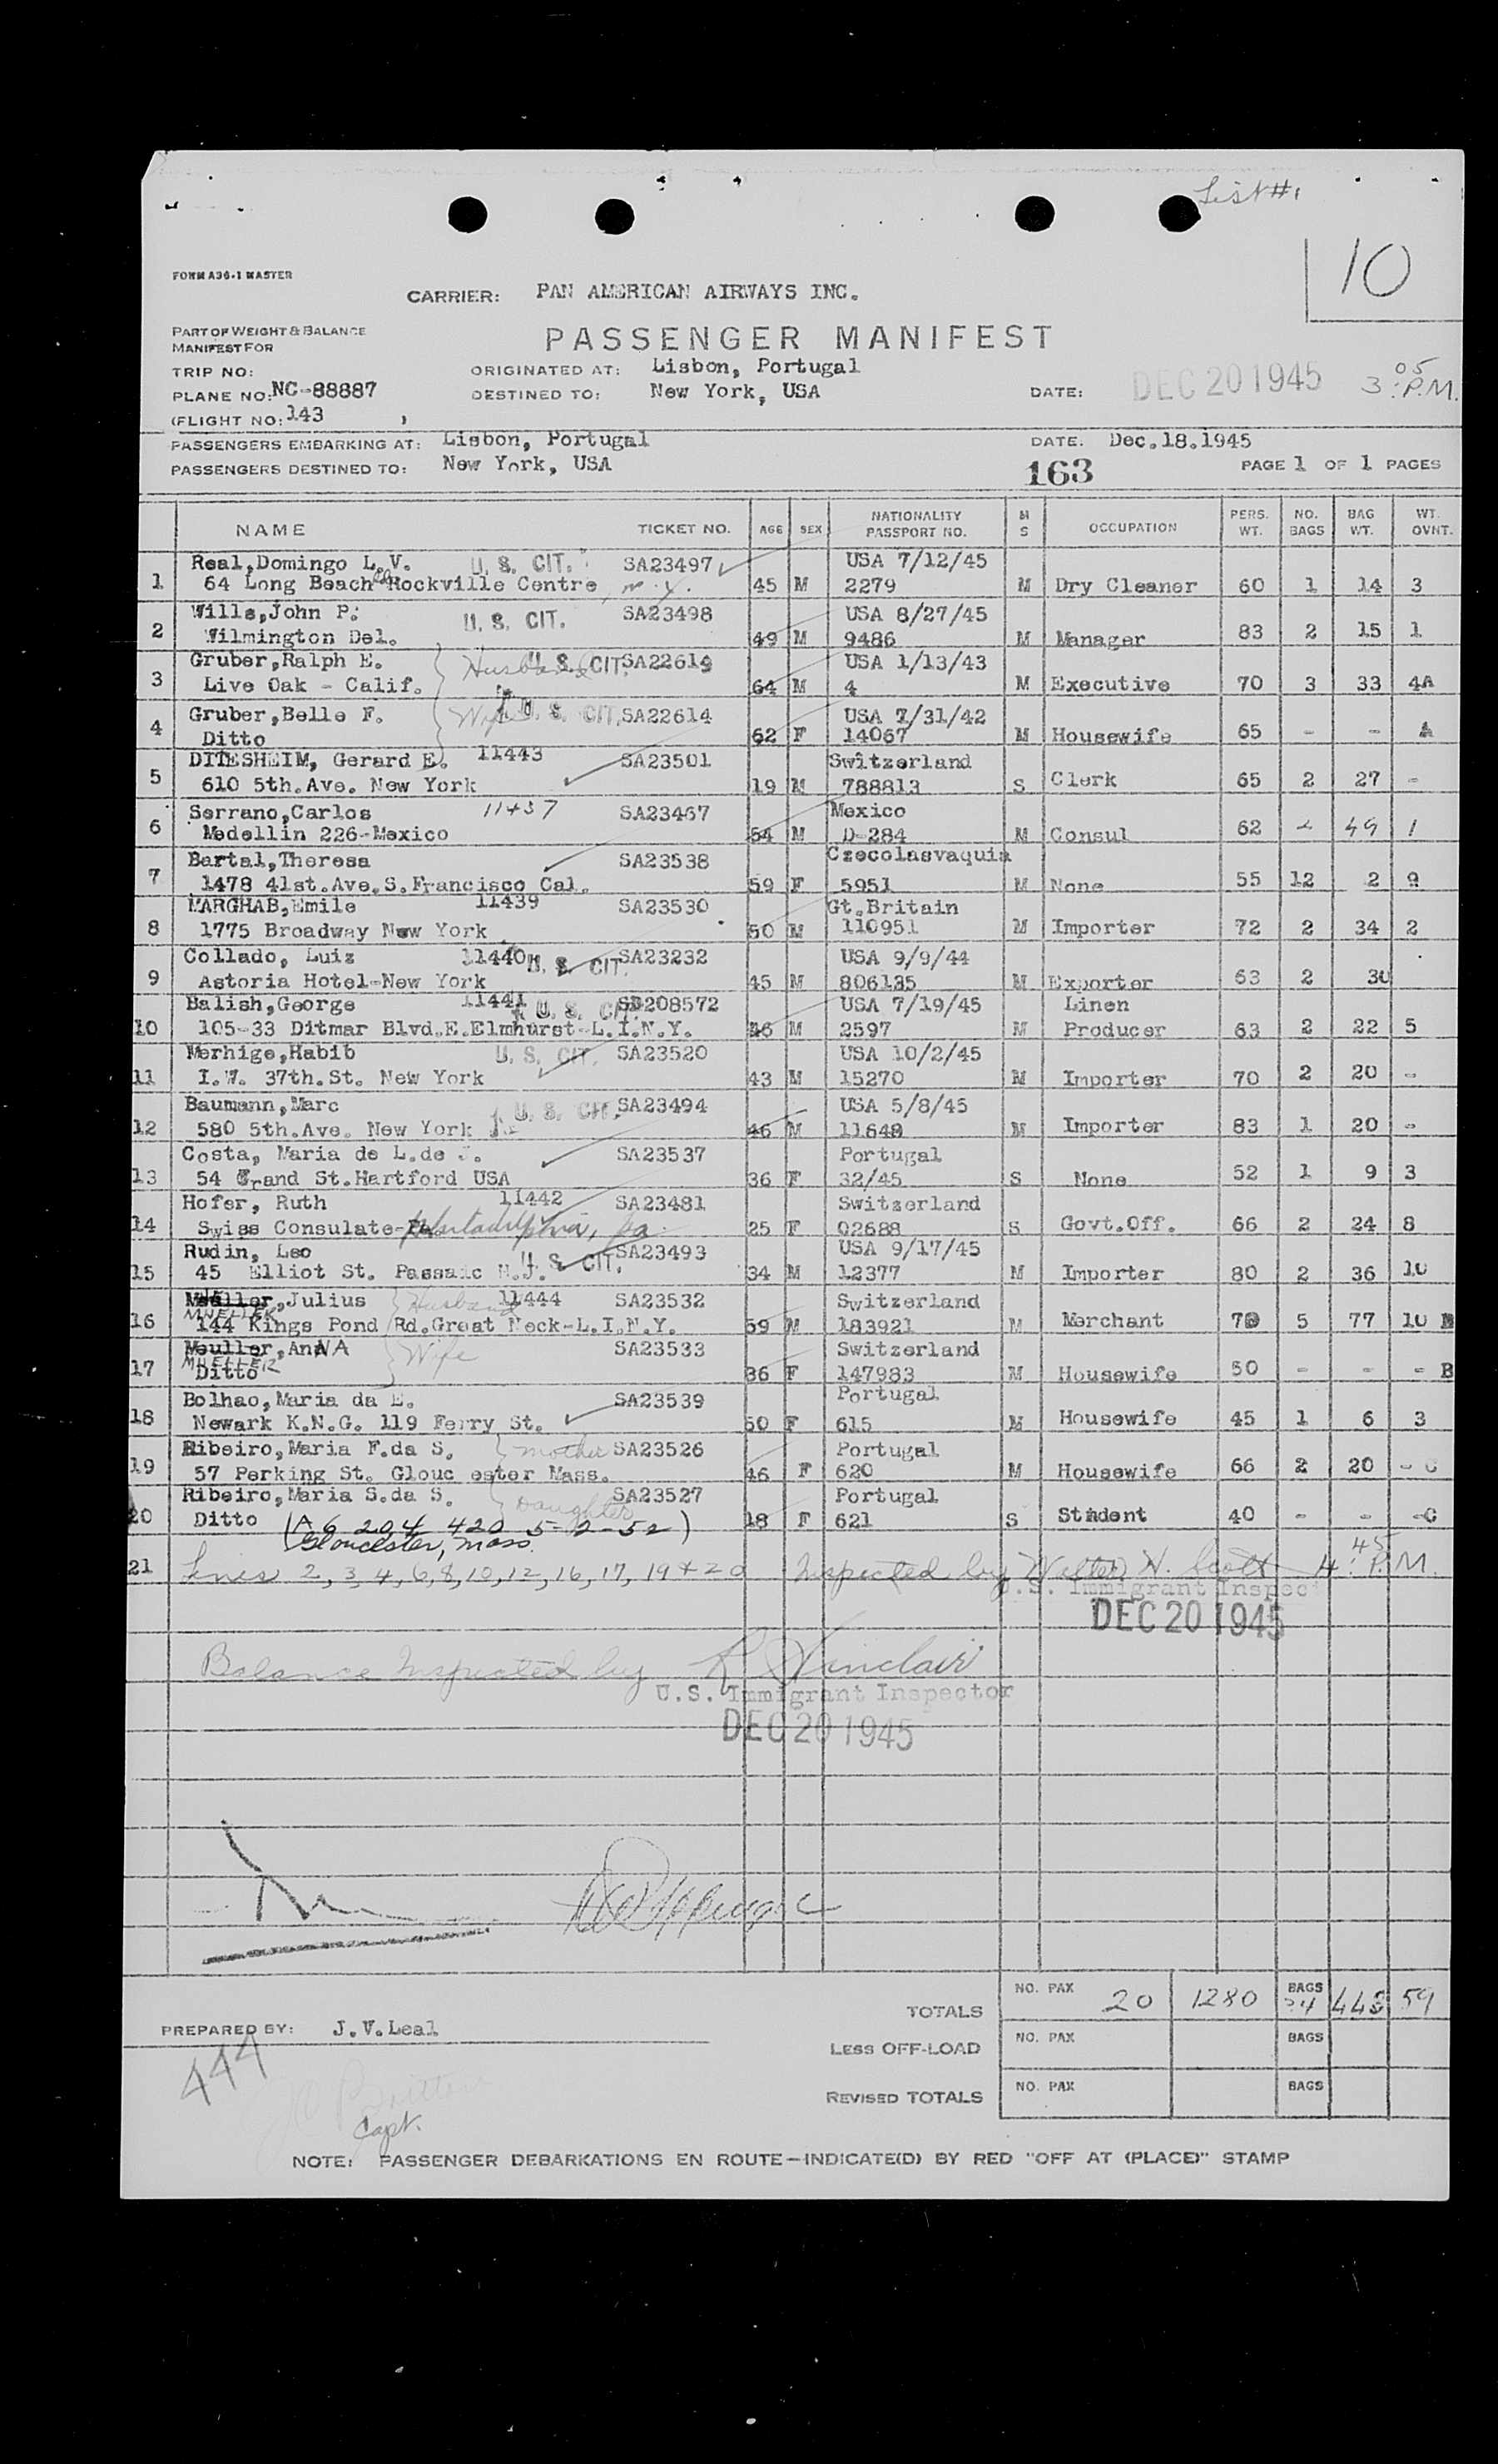 List #1
10
FORM A36-1 MASTER
CARRIER: PAN AMERICAN AIRWAYS INC.
PART OF WEIGHT & BALANCE
MANIFEST FOR
PASSENGER MANIFEST
TRIP NO: ORIGINATED AT: Lisbon, Portugal
PLANE NO: NC-88887 DESTINED TO: New York, USA DATE: DEC 20 1945 3:05 P.M.
(FLIGHT NO: 143 )
PASSENGERS EMBARKING AT: Lisbon, Portugal DATE. Dec.18.1945
PASSENGERS DESTINED TO: New York, USA 163 PAGE 1 OF 1 PAGES
NAME TICKET NO. AGE SEX NATIONALITY PASSPORT NO. M S OCCUPATION PERS. WT. NO. BAGS BAG WT. WT. OVNT.
Real,Domingo L.V. U. S. CIT. SA23497 USA 7/12/45
1 64 Long Beach Rd Rockville Centre, N.Y. 45 M 2279 M Dry Cleaner 60 1 14 3
Wills,John P. U. S. CIT. SA23498 USA 8/27/45
2 Wilmington Del. 49 M 9486 M Manager 83 2 15 1
Gruber,Ralph E. Husband U. S. CIT. SA22613 USA 1/13/43
3 Live Oak - Calif. 64 M 4 M Executive 70 3 33 4A
Gruber,Belle F. Wife U. S. CIT. SA22614 USA 7/31/42
4 Ditto 62 F 14067 M Housewife 65 - - A
DITESHEIM, Gerard E. 11443 SA23501 Switzerland
5 610 5th.Ave. New York 19 M 788813 S Clerk 65 2 27 -
Serrano,Carlos 11437 SA23467 Mexico
6 Medellin 226-Mexico 54 M D-284 M Consul 62 2 49 1
Bartal,Theresa SA23538 Czecolasvaquia
7 1478 41st.Ave.S.Francisco Cal. 59 F 5951 M None 55 12 2 9
MARGHAB,Emile 11439 SA23530 Gt.Britain
8 1775 Broadway New York 50 M 110951 M Importer 72 2 34 2
Collado, Luiz 11440 U. S. CIT. SA23232 USA 9/9/44
9 Astoria Hotel-New York 45 M 806135 M Exporter 63 2 30
Balish,George 11441 U. S. CIT. SB208572 USA 7/19/45 Linen
10 105-33 Ditmar Blvd.E.Elmhurst-L.I.N.Y. 46 M 2597 M Producer 63 2 22 5
Merhige,Habib U. S. CIT. SA23520 USA 10/2/45
11 I.W. 37th.St. New York 43 M 15270 M Importer 70 2 20 -
Baumann,Marc U. S. CIT. SA23494 USA 5/8/45
12 580 5th.Ave. New York 46 M 11648 M Importer 83 1 20 -
Costa, Maria de L.de J. SA23537 Portugal
13 54 Grand St.Hartford USA 36 F 32/45 S None 52 1 9 3
Hofer, Ruth 11442 SA23481 Switzerland
14 Swiss Consulate-Philadelphia, Pa. 25 F 02688 S Govt.Off. 66 2 24 8
Rudin, Leo U. S. CIT. SA23493 USA 9/17/45
15 45 Elliot St. Passaic N.J. 34 M 12377 M Importer 80 2 36 10
MUELLER,Julius Husband 11444 SA23532 Switzerland
16 144 Kings Pond Rd.Great Neck-L.I.N.Y. 59 M 183921 M Merchant 70 5 77 10 B
Meuller,AnNA Wife SA23533 Switzerland
17 MUELLER Ditto 36 F 147983 M Housewife 50 - - - B
Bolhao,Maria da E. SA23539 Portugal
18 Newark K.N.G. 119 Ferry St. 50 F 615 M Housewife 45 1 6 3
Ribeiro,Maria F.da S. mother SA23526 Portugal
19 57 Perking St. Glouc ester Mass. 46 F 620 M Housewife 66 2 20 - C
Ribeiro,Maria S.da S. Daughter SA23527 Portugal
20 Ditto (A 6 204 420 5-2-52) 18 F 621 S Student 40 - - -C
Gloucester, Mass.
21 Lines 2, 3, 4, 6, 8, 10, 12, 16, 17, 19 + 20 Inspected by Walter N. Scott 4:45 P.M.
U.S. Immigrant Inspec
DEC 20 1945
Balance Inspected by R Sinclair
U.S. Immigrant Inspector
DEC 20 1945
TOTALS NO. PAX 20 1280 BAGS 448 59
PREPARED BY: J.V.Leal
LESS OFF-LOAD NO. PAX BAGS
444
REVISED TOTALS NO. PAX BAGS
Capt.
NOTE: PASSENGER DEBARKATIONS EN ROUTE-INDICATE(D) BY RED "OFF AT (PLACE)" STAMP